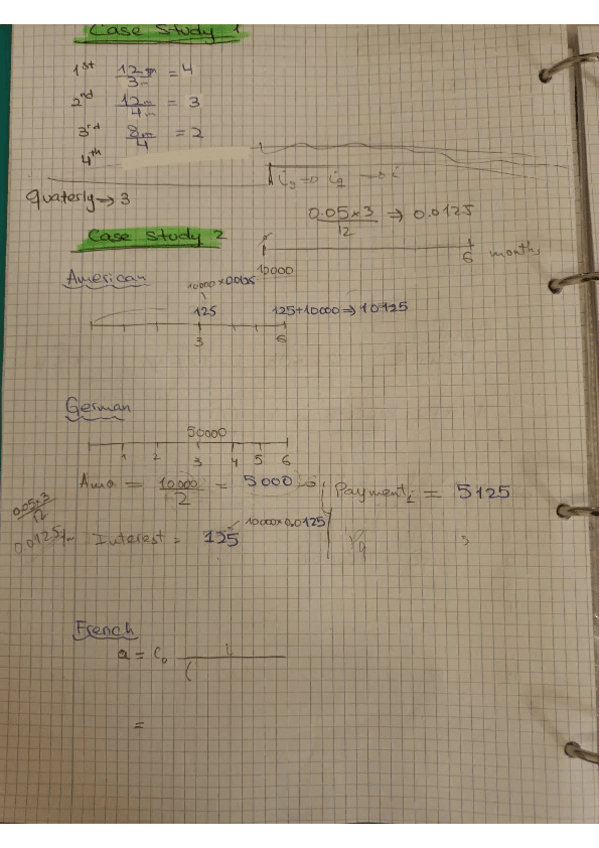 Case Study 1
1st 12m/3m = 4
2nd 12m/4m = 3
3rd 8m/4 = 2
4th
Quaterly → 3
0.05×3/12 ⇒ 0.0125
Case Study 2
10000
6 months
American
10000×0.0125
125
125+10000 ⇒ 10125
3 6
German
50000
1 2 3 4 5 6
Amo = 10000/2 = 5000
Payment = 5125
0.05×3/12
0.0125
10000×0.0125
Interest = 125
French
a = C₀ i
(
=